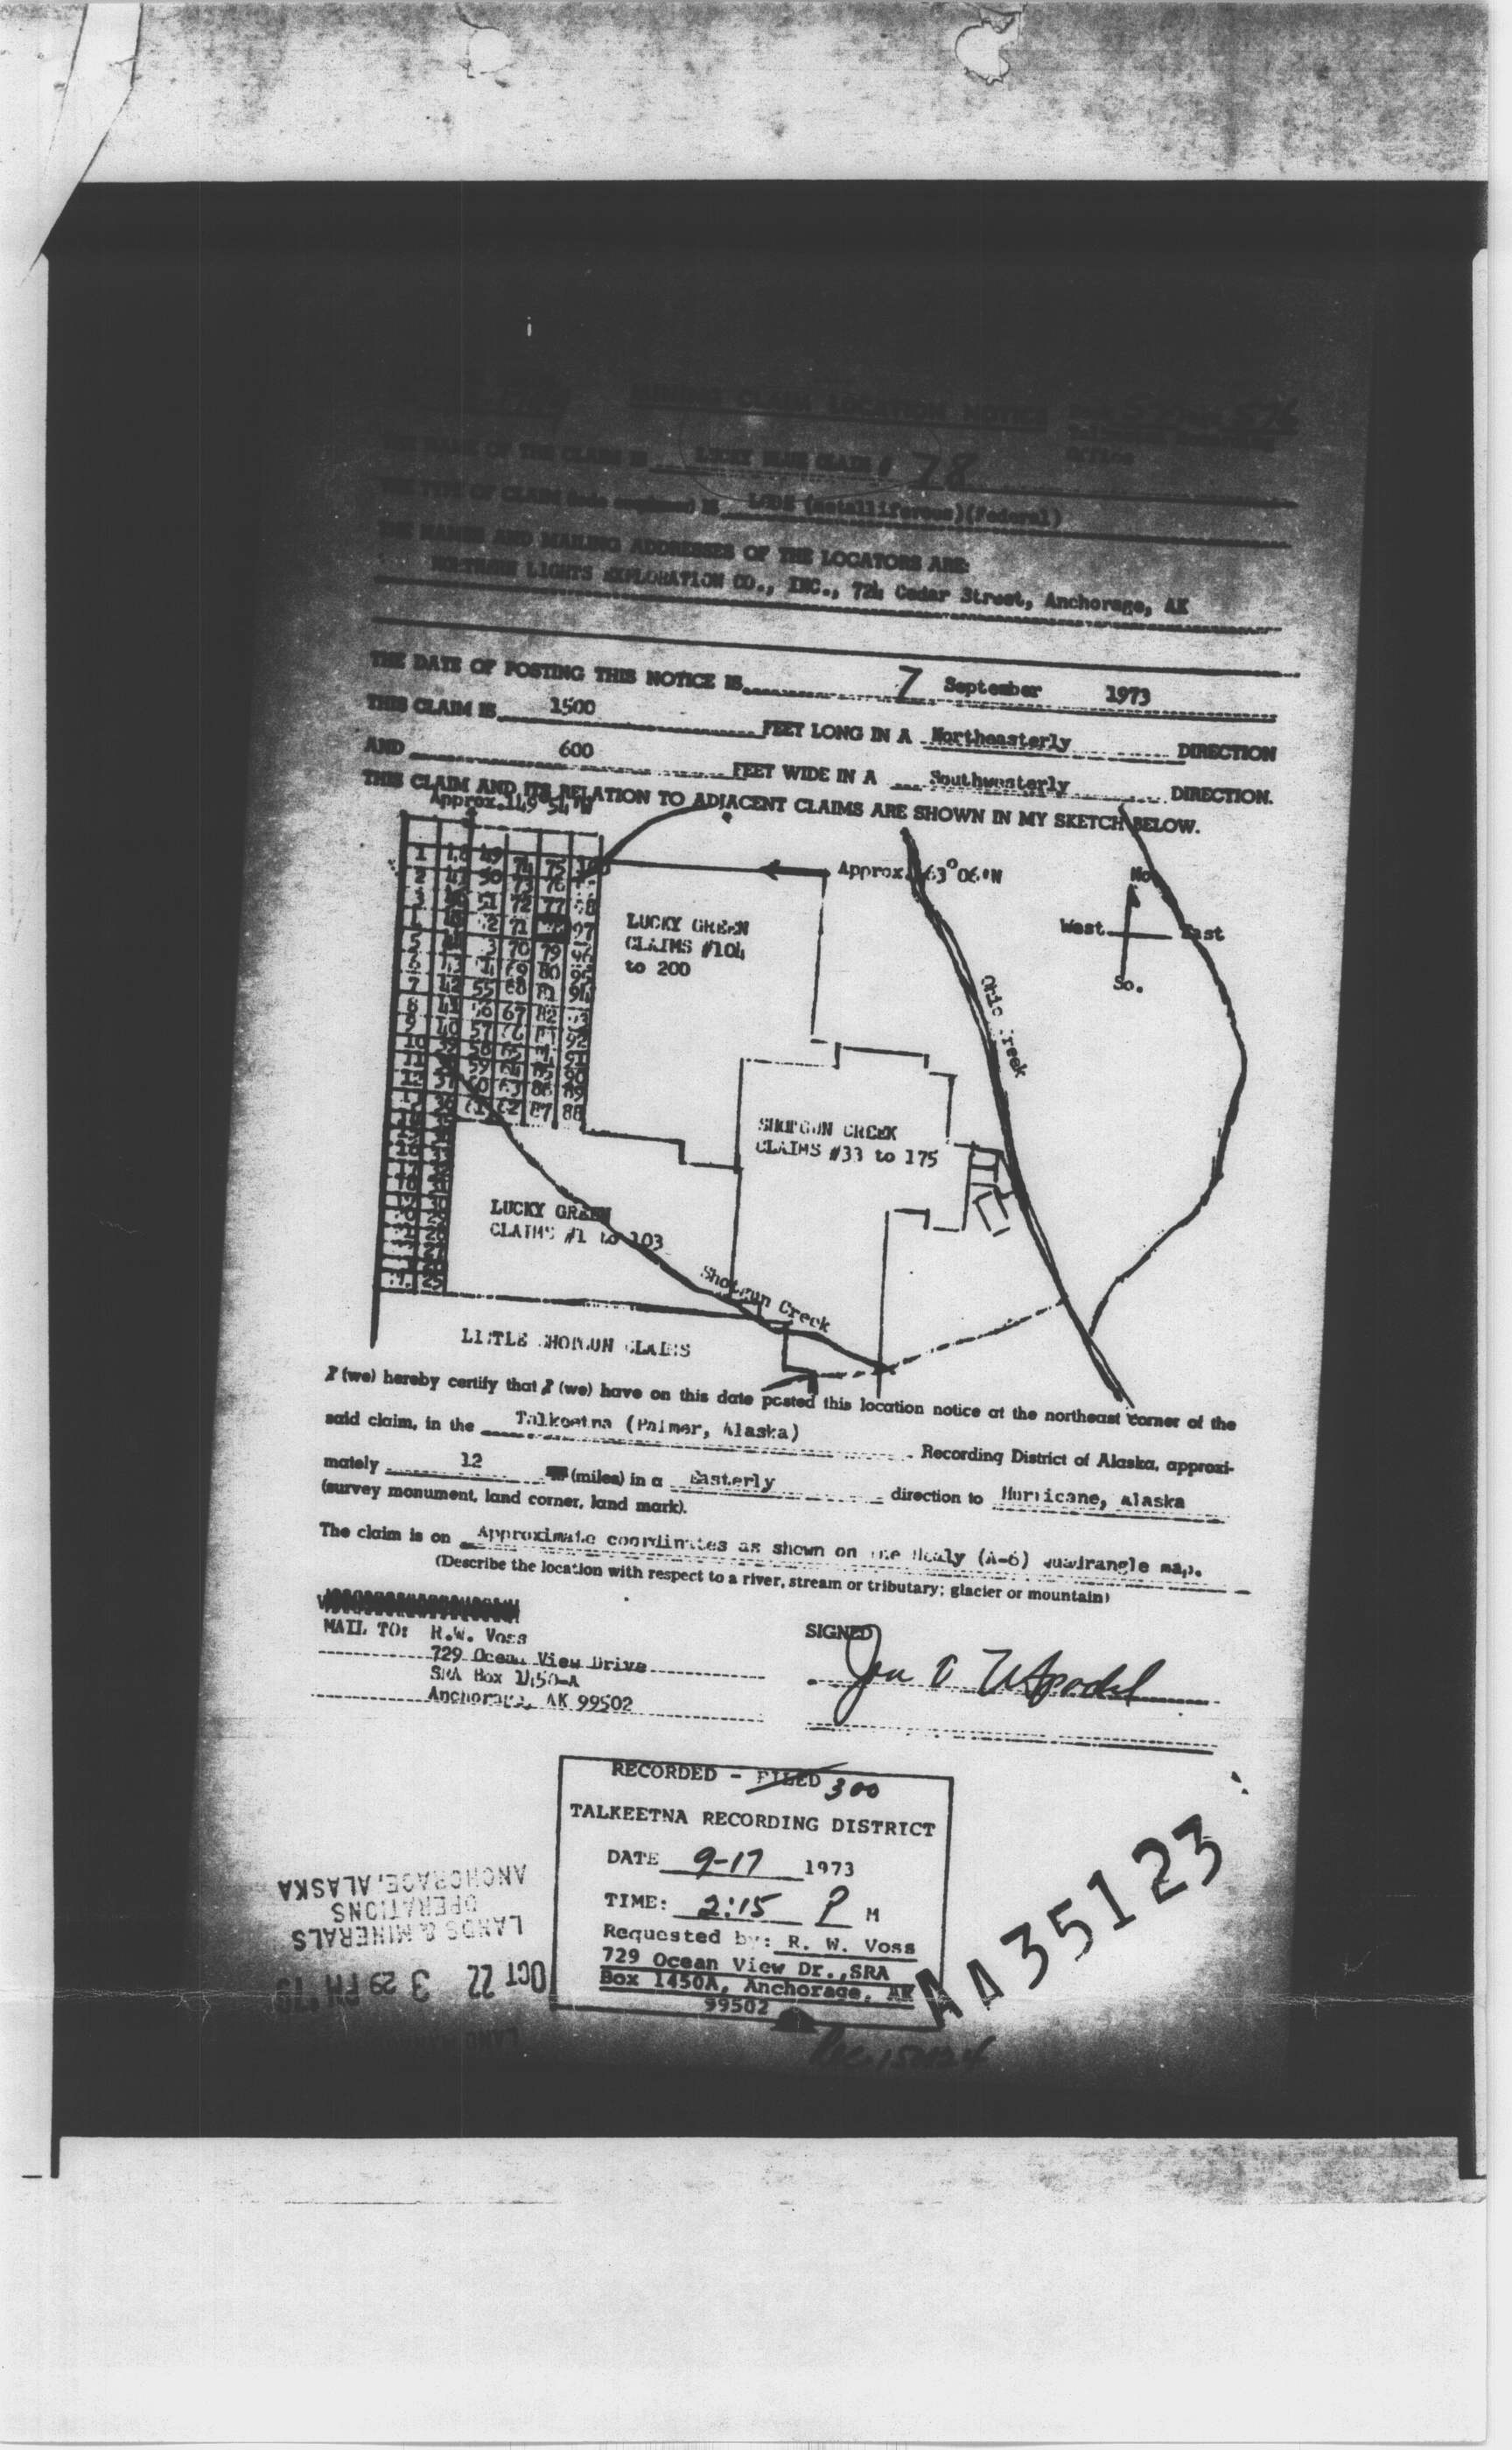 MINING CLAIM LOCATION NOTICE
THE NAME OF THE CLAIM IS LUCKY BLUE CLAIM # 78
THE TYPE OF CLAIM IS LODE (metalliferous)(Federal)
THE NAMES AND MAILING ADDRESSES OF THE LOCATORS ARE:
NORTHERN LIGHTS EXPLORATION CO., INC., 724 Cedar Street, Anchorage, AK
THE DATE OF POSTING THIS NOTICE IS 7 September 1973
THIS CLAIM IS 1500 FEET LONG IN A Northeasterly DIRECTION
AND 600 FEET WIDE IN A Southwesterly DIRECTION.
THIS CLAIM AND ITS RELATION TO ADJACENT CLAIMS ARE SHOWN IN MY SKETCH BELOW.
Approx. 149°54'W
Approx. 63°06'N
1 49 74 75
2 47 50 73 76
51 72 77 98
71 97
5 70 79 96
6 69 80 95
7 42 55 68 81 94
8 67 82
9 40 57 92
10 39 58 65 91
11 59 64 85 90
60 63 86 89
61 62 87 88
25
LUCKY GREEN
CLAIMS #104
to 200
No.
West East
So.
Ohio Creek
SHOTGUN CREEK
CLAIMS #33 to 175
LUCKY GREEN
CLAIMS #1 to 103
Shotgun Creek
LITTLE SHOTGUN CLAIMS
I (we) hereby certify that I (we) have on this date posted this location notice at the northeast corner of the
said claim, in the Talkeetna (Palmer, Alaska) Recording District of Alaska, approxi-
mately 12 (miles) in a Easterly direction to Hurricane, Alaska
(survey monument, land corner, land mark).
The claim is on Approximate coordinates as shown on the Healy (A-6) Quadrangle map.
(Describe the location with respect to a river, stream or tributary; glacier or mountain)
MAIL TO: R.W. Voss
729 Ocean View Drive
SRA Box 1450-A
Anchorage, AK 99502
SIGNED
RECORDED - FILED 300
TALKEETNA RECORDING DISTRICT
DATE 9-17 1973
TIME: 2:15 P M
Requested by: R. W. Voss
729 Ocean View Dr., SRA
Box 1450A, Anchorage, AK
99502
AA35123
ANCHORAGE, ALASKA
OPERATIONS
LANDS & MINERALS
OCT 22 3 29 PM '79